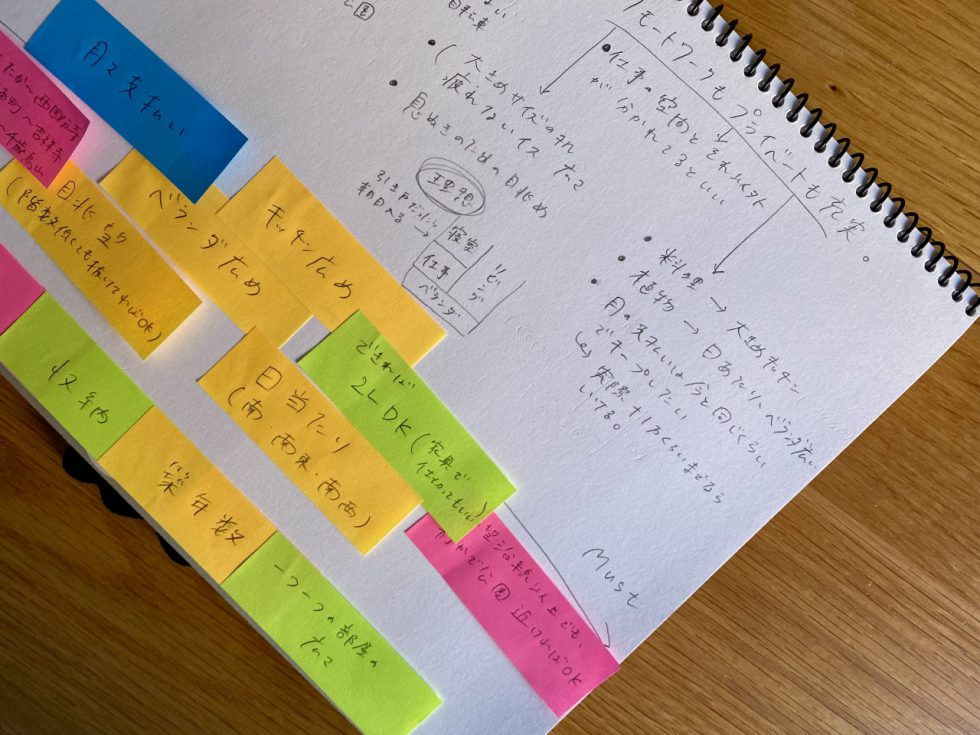 リモートワークもプライベートも充実。
・仕事の空間とそれ以外
が分かれてるといい
・料理 → 大きめキッチン
・植物 → 日あたり、ベランダ広い
・月の支払いは今と同じくらい
でキープしたい
実際+1万くらいまでなら
いける。
自転車
公園
・(大きめサイズの机
疲れないイス 広さ
・息ぬきのための日兆め
理想
引き戸
朝日入る
→
寝室
仕事
ベランダ
リビング
Must
月々支払い
西国分寺
町〜吉祥寺
〜千歳烏山
キッチン広め
ベランダ広め
日兆望
(階数低くても抜けてればOK)
できれば
2LDK(家具で
仕切ってもいい)
日当たり
(南・南東・南西)
収納
築年数
一つ一つの部屋の
広さ
以上でも、
公園近ければOK